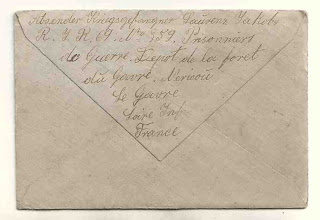 Absender Kriegsgefangner Laurenz Jakobs
R. I. R. 69. No 959. Prisonniers
de Guerre. Depot de la foret
du Gavre.
Le Gavre
Loire Inf.
France